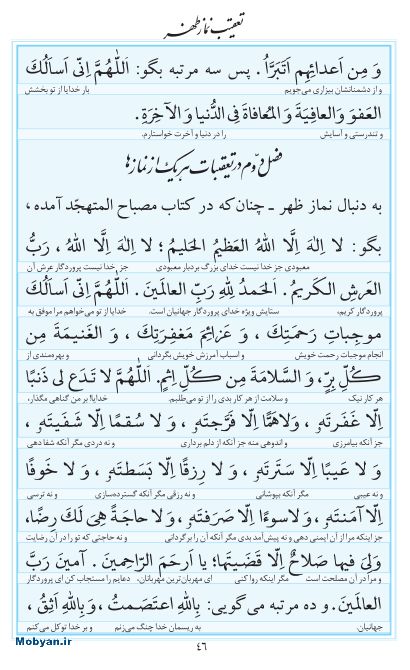 تعقیب نماز ظهر
وَ مِن اَعدائِهِم اَتَبَرَّأُ. پس سه مرتبه بگو: اَللّٰهُمَّ اِنّی اَسأَلُكَ
و از دشمنانشان بیزاری می‌جویم بار خدایا از تو بخشش
العَفوَ وَالعافِيَةَ وَالمُعافاةَ فِی الدُّنيا وَالآخِرَةِ.
و تندرستی و آسایش را در دنیا و آخرت خواستارم.
فصل دوّم در تعقیبات هریک از نمازها
به دنبال نماز ظهر ـ چنان‌که در کتاب مصباح المتهجّد آمده،
بگو: لا اِلٰهَ اِلَّا اللهُ العَظيمُ الحَليمُ؛ لا اِلٰهَ اِلَّا اللهُ، رَبُّ
معبودی جز خدا نیست خدای بزرگ بردبار معبودی جز خدا نیست پروردگار عرش آن
العَرشِ الكَريمُ. اَلحَمدُ لِلهِ رَبِّ العالَمينَ. اَللّٰهُمَّ اِنّی اَسأَلُكَ
پروردگار کریم، ستایش ویژه خدای پروردگار جهانیان است. خدایا از تو می‌خواهم مرا موفق به
موجِباتِ رَحمَتِكَ، وَ عَزائِمَ مَغفِرَتِكَ، وَ الغَنيمَةَ مِن
انجام موجبات رحمت خویش و اسباب آمرزش خویش بگردانی و بهره‌مندی از
كُلِّ بِرٍّ، وَ السَّلامَةَ مِن كُلِّ اِثمٍ. اَللّٰهُمَّ لا تَدَع لی ذَنبًا
هر کار نیک و سلامت از هر کار بدی را از تو می‌طلبم. خدایا! بر من گناهی مگذار،
اِلّا غَفَرتَهُ، وَلا هَمًّا اِلّا فَرَّجتَهُ، وَ لا سُقمًا اِلّا شَفَيتَهُ،
جز آنکه بیامرزی و اندوهی منه جز آنکه از دلم برداری و نه دردی مگر آنکه شفا دهی
وَ لا عَيبًا اِلّا سَتَرتَهُ، وَ لا رِزقًا اِلّا بَسَطتَهُ، وَ لا خَوفًا
و نه عیبی مگر آنکه بپوشانی و نه رزقی مگر آنکه گسترده‌سازی و نه ترسی
اِلّا آمَنتَهُ، وَ لا سوءًا اِلّا صَرَفتَهُ، وَ لا حاجَةً هِیَ لَكَ رِضًا،
جز اینکه مرا از آن ایمنی دهی و نه پیش‌آمد بدی مگر آنکه آن را برگردانی و نه حاجتی که تو را در آن رضایت
وَلِیَ فيها صَلاحٌ اِلّا قَضَيتَها؛ يا اَرحَمَ الرّاحِمينَ. آمينَ رَبَّ
و مرا در آن مصلحت است مگر اینکه روا کنی ای مهربان‌ترین مهربانان، دعایم را مستجاب کن ای پروردگار
العالَمينَ. و ده مرتبه می‌گویی: بِاللهِ اعتَصَمتُ، وَ بِاللهِ اَثِقُ،
جهانیان. به ریسمان خدا چنگ می‌زنم و بر خدا توکل می‌کنم
٤٦
Mobyan.ir